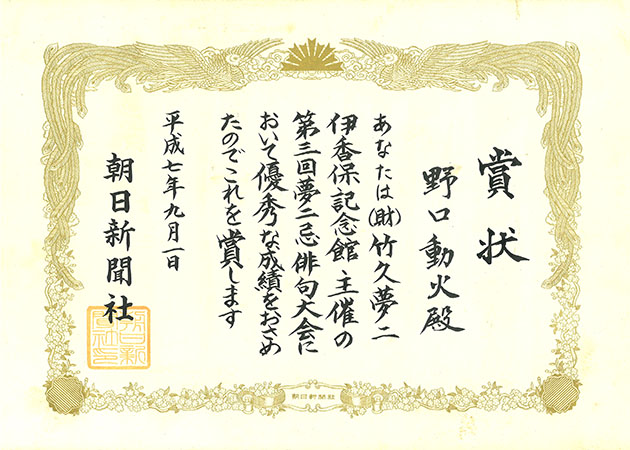 賞状
野口動火殿
あなたは(財)竹久夢二
伊香保記念館主催の
第三回夢二忌俳句大会に
おいて優秀な成績をおさめ
たのでこれを賞します
平成七年九月一日
朝日新聞社
朝日新聞社